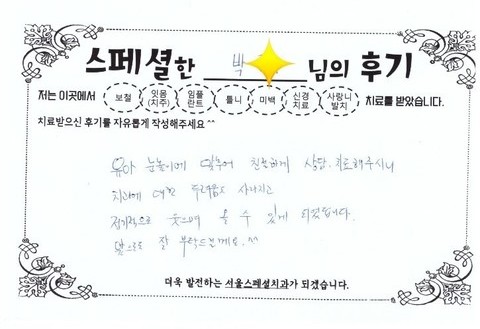 스페셜한 박 님의 후기
저는 이곳에서 보철 잇몸(치주) 임플란트 틀니 미백 신경치료 사랑니발치 치료를 받았습니다.
치료받으신 후기를 자유롭게 작성해주세요^^
유아 눈높이에 맞추어 친절하게 상담.치료해주시니
치과에 대한 두려움도 사라지고
정기적으로 웃으며 올 수 있게 되었습니다.
앞으로도 잘 부탁드릴께요.^^
더욱 발전하는 서울스페셜치과가 되겠습니다.